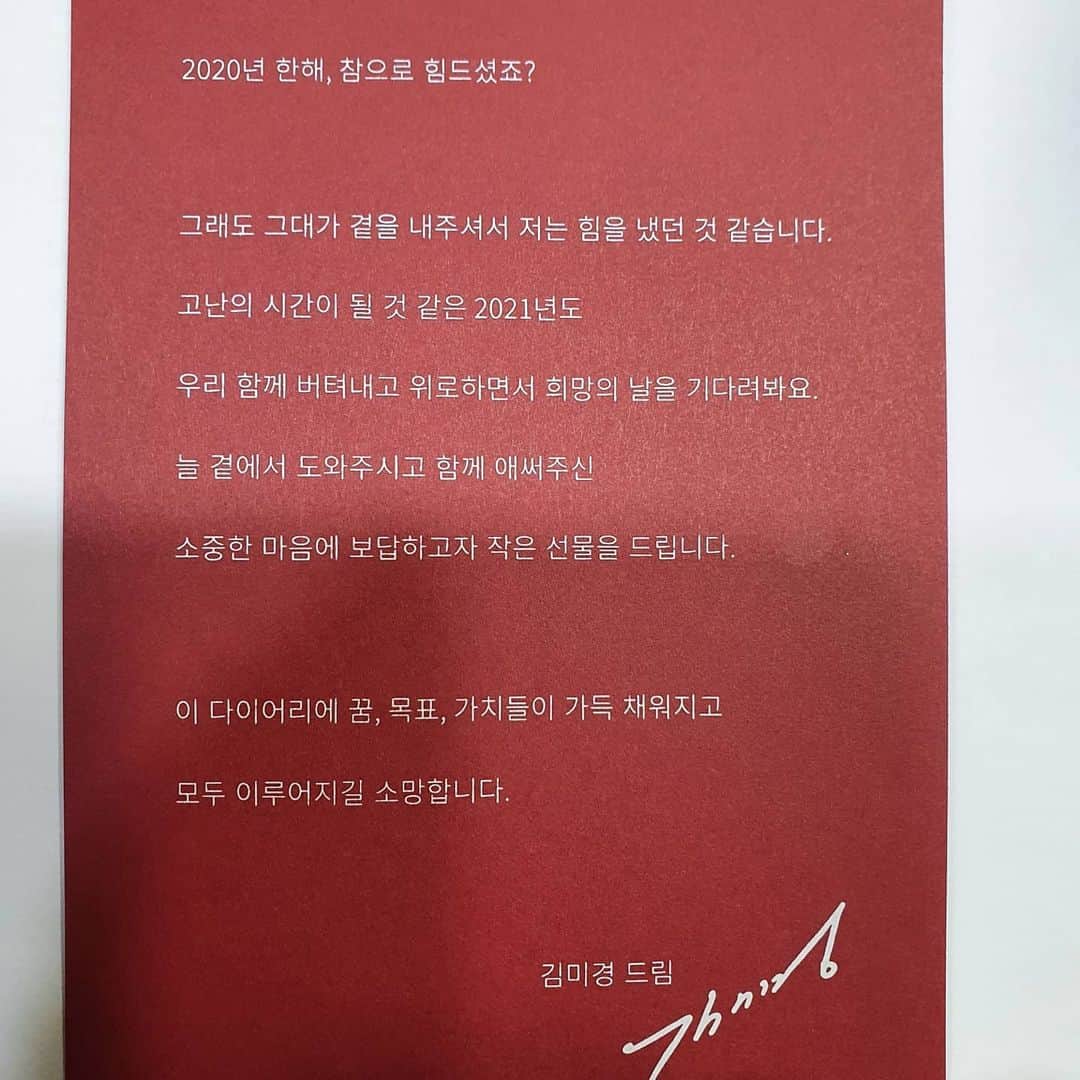 2020년 한해, 참으로 힘드셨죠?
그래도 그대가 곁을 내주셔서 저는 힘을 냈던 것 같습니다.
고난의 시간이 될 것 같은 2021년도
우리 함께 버텨내고 위로하면서 희망의 날을 기다려봐요.
늘 곁에서 도와주시고 함께 애써주신
소중한 마음에 보답하고자 작은 선물을 드립니다.
이 다이어리에 꿈, 목표, 가치들이 가득 채워지고
모두 이루어지길 소망합니다.
김미경 드림